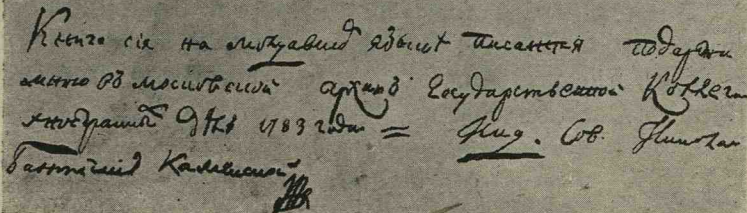 Книга сія на молдавскомъ языкѣ писанная подарена
мною въ московской архивъ Государственной Коллегіи
иностранныхъ дѣлъ 1783 года = Над. Сов. Николай
Бантышъ Каменской